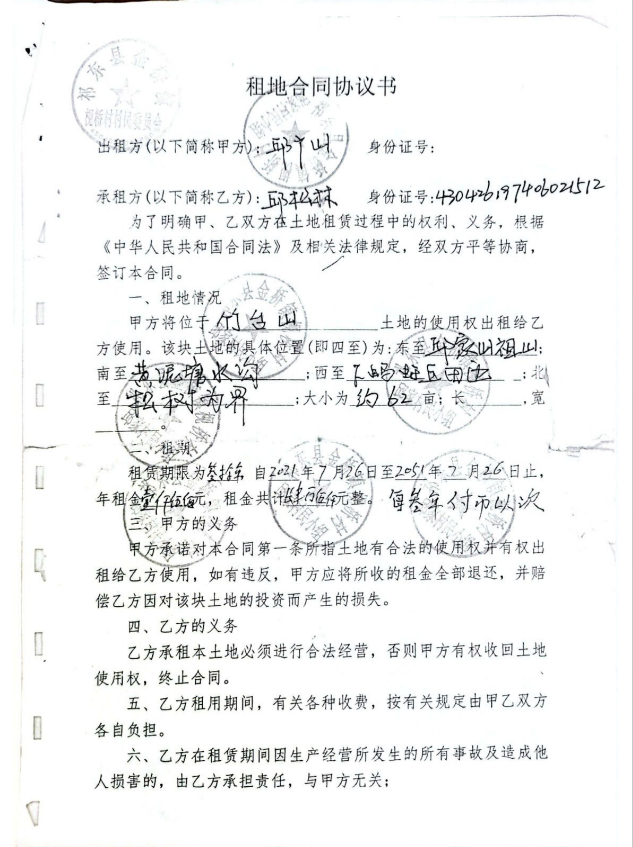 租地合同协议书
祁东县金桥镇
村民委员会
出租方(以下简称甲方):邱 山 身份证号:
承租方(以下简称乙方):邱松林 身份证号:430426197406021512
为了明确甲、乙双方在土地租赁过程中的权利、义务，根据
《中华人民共和国合同法》及相关法律规定，经双方平等协商，
签订本合同。
一、租地情况
甲方将位于 竹台山 土地的使用权出租给乙
方使用。该块土地的具体位置(即四至)为:东至邱家山祖山;
南至黄泥塘水沟;西至 丘田 ;北
至 松树为界;大小为 约62 亩;长 ,宽
。
二、租期
租赁期限为叁拾年 自2021年7月26日至2051年7月26日止,
年租金壹仟伍佰元，租金共计 元整。每叁年付 以次
三、甲方的义务
甲方承诺对本合同第一条所指土地有合法的使用权并有权出
租给乙方使用，如有违反，甲方应将所收的租金全部退还，并赔
偿乙方因对该块土地的投资而产生的损失。
四、乙方的义务
乙方承租本土地必须进行合法经营，否则甲方有权收回土地
使用权，终止合同。
五、乙方租用期间，有关各种收费，按有关规定由甲乙双方
各自负担。
六、乙方在租赁期间因生产经营所发生的所有事故及造成他
人损害的，由乙方承担责任，与甲方无关;